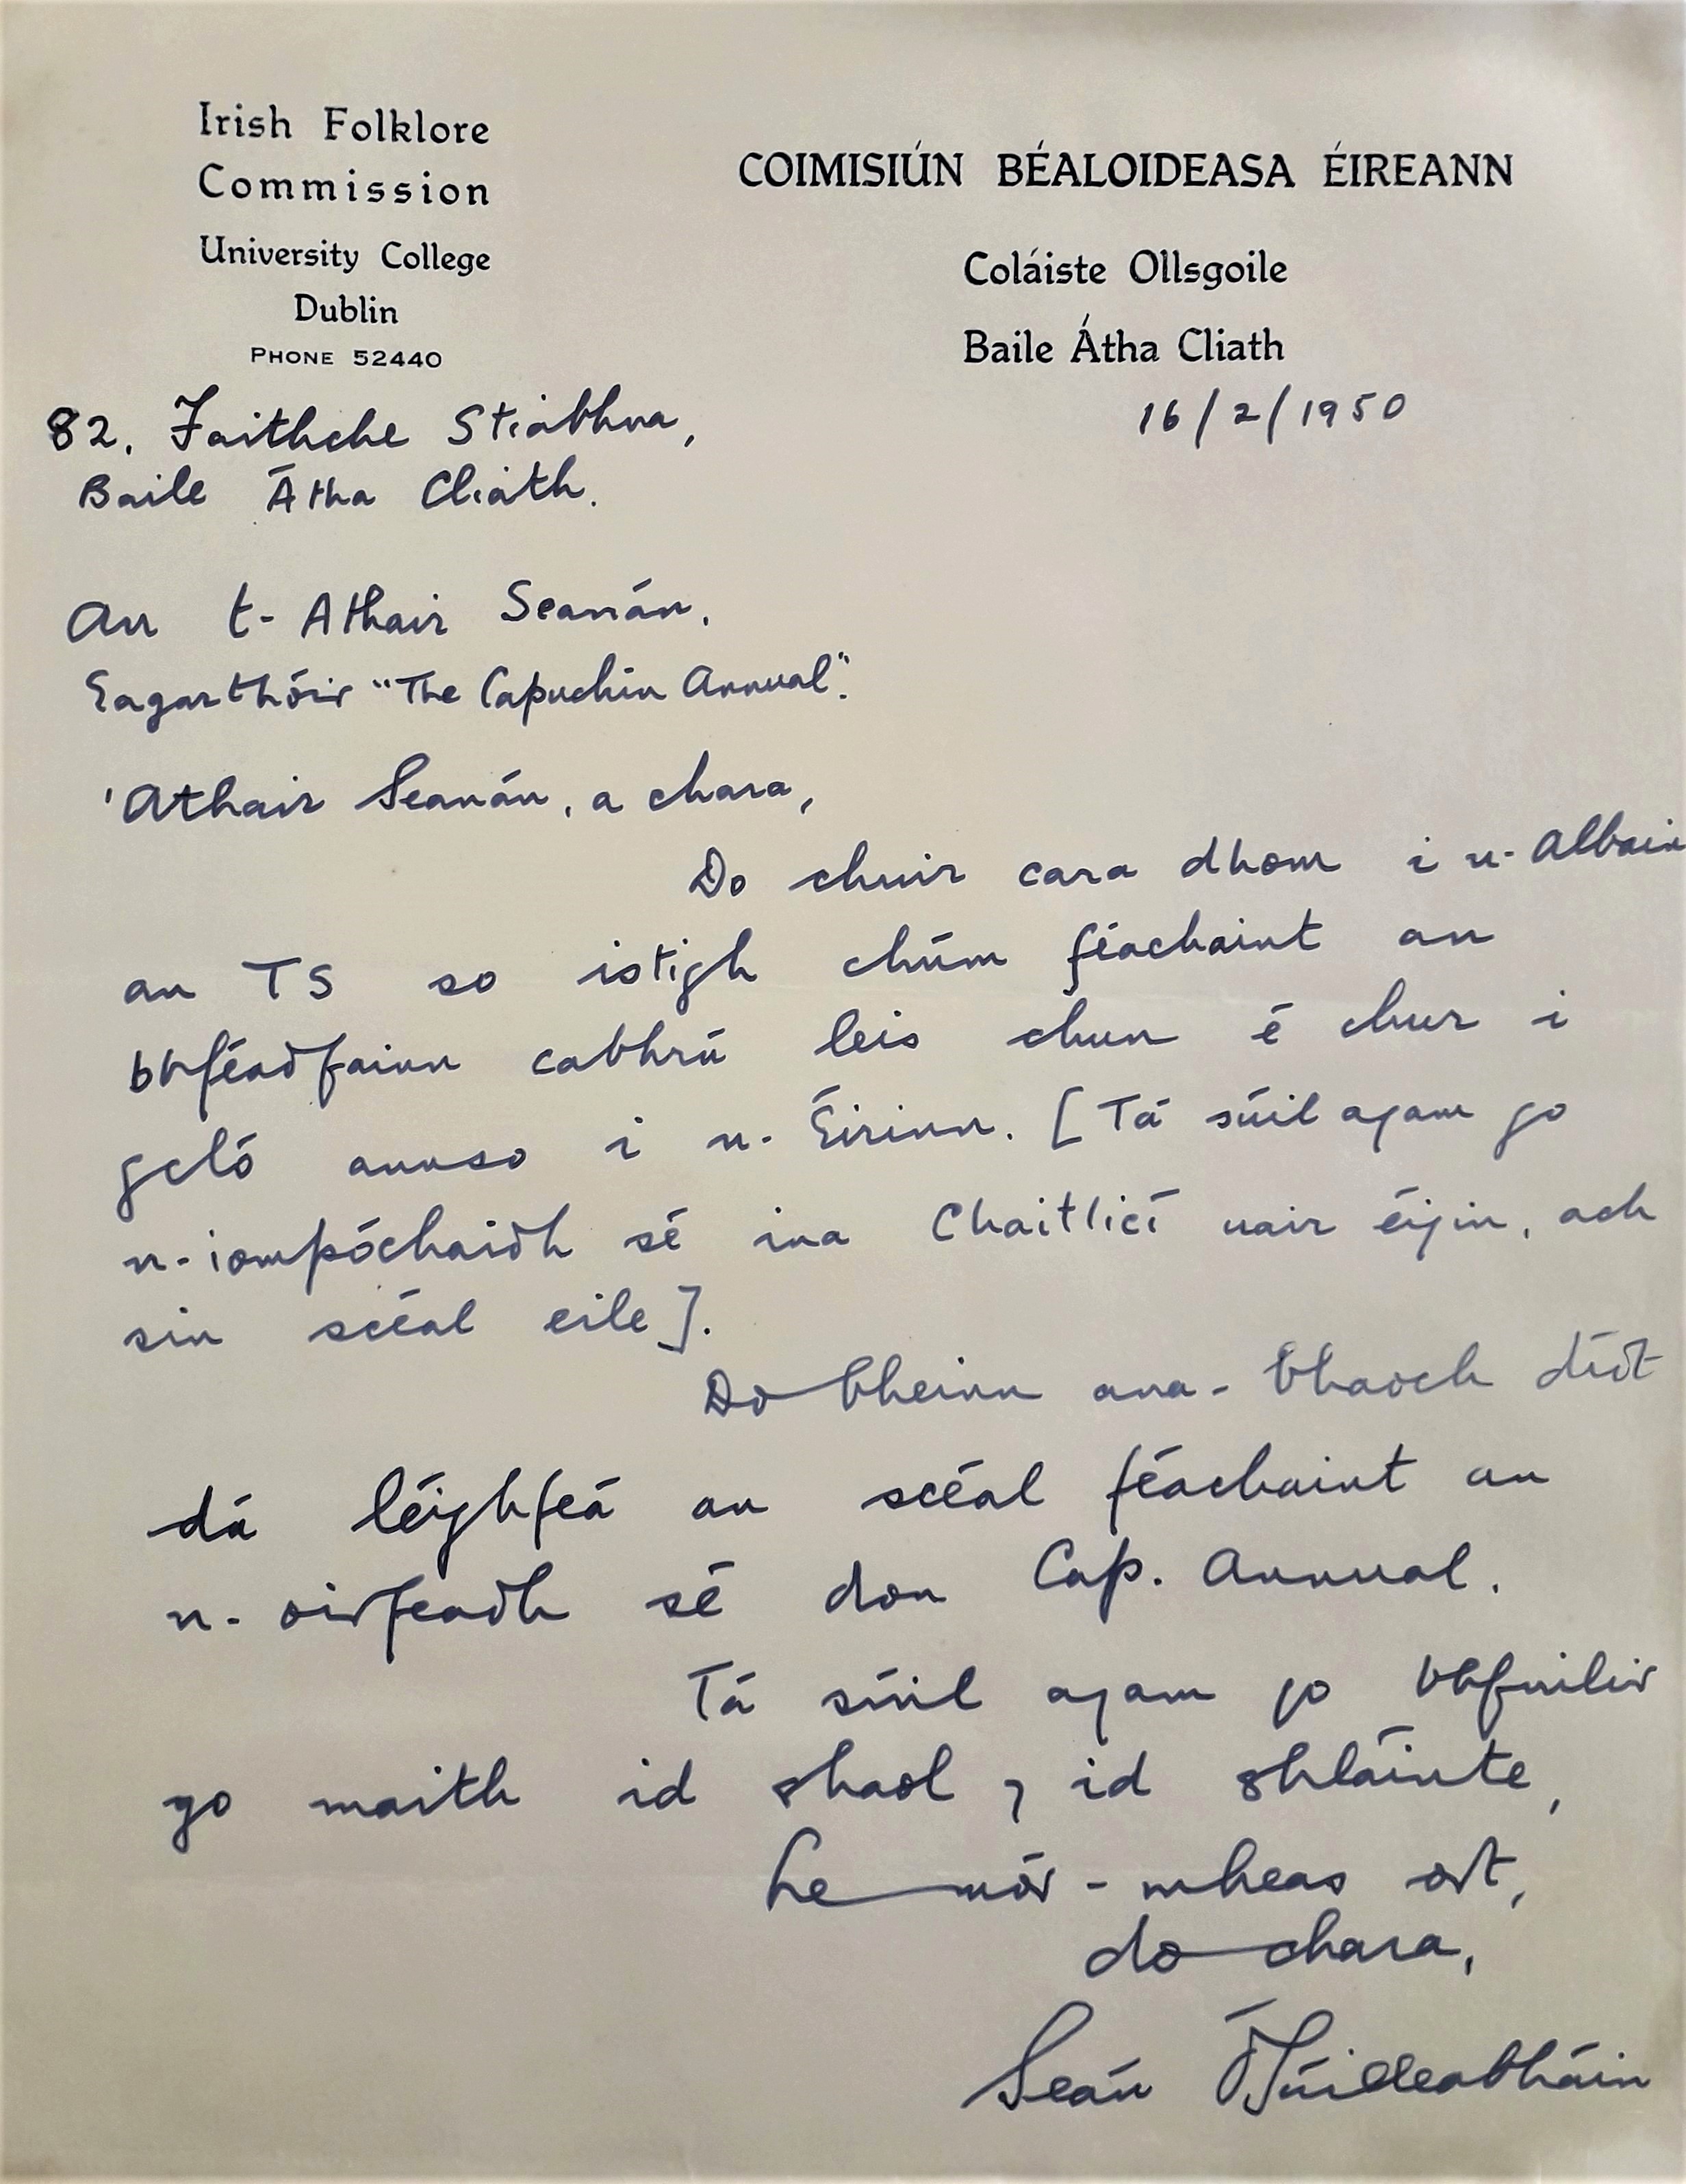 Irish Folklore
Commission
University College
Dublin
PHONE 52440
COIMISIÚN BÉALOIDEASA ÉIREANN
Coláiste Ollsgoile
Baile Átha Cliath
16/2/1950
82. Faithche Stiabhna,
Baile Átha Cliath.
An t-Athair Seanán,
Eagarthóir "The Capuchin Annual".
'Athair Seanán, a chara,
Do chuir cara dhom i n-Albain
an TS so istigh chúm féachaint an
bhféadfainn cabhrú leis chun é chur i
gcló annso i n-Éirinn. [Tá súil agam go
n-iompóchaidh sé ina Chaitlicí uair éigin, ach
sin scéal eile].
Do bheinn ana-bhaoch díot
dá léighfeá an scéal féachaint an
n-oirfeadh sé don Cap. Annual.
Tá súil agam go bhfuilir
go maith id shaol ⁊ id shláinte,
Le mór-mheas ort,
do chara,
Seán Ó Súilleabháin